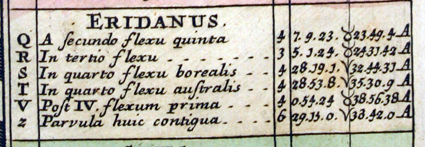 ERIDANUS.
Q A secundo flexu quinta 4 7.9.23. ♉ 23.49.4 A
R In tertio flexu - - - - - - 3 5.1.24. 24.31.42 A
S In quarto flexu borealis - - 4 28.19.1. 32.44.31 A
T In quarto flexu australis - - 4 28.53.8. 35.30.9 A
V Post IV. flexum prima - - - 4 0.54.24 ♉ 38.56.38 A
z Parvula huic contigua - - - 6 29.15.0. 38.42.0 A